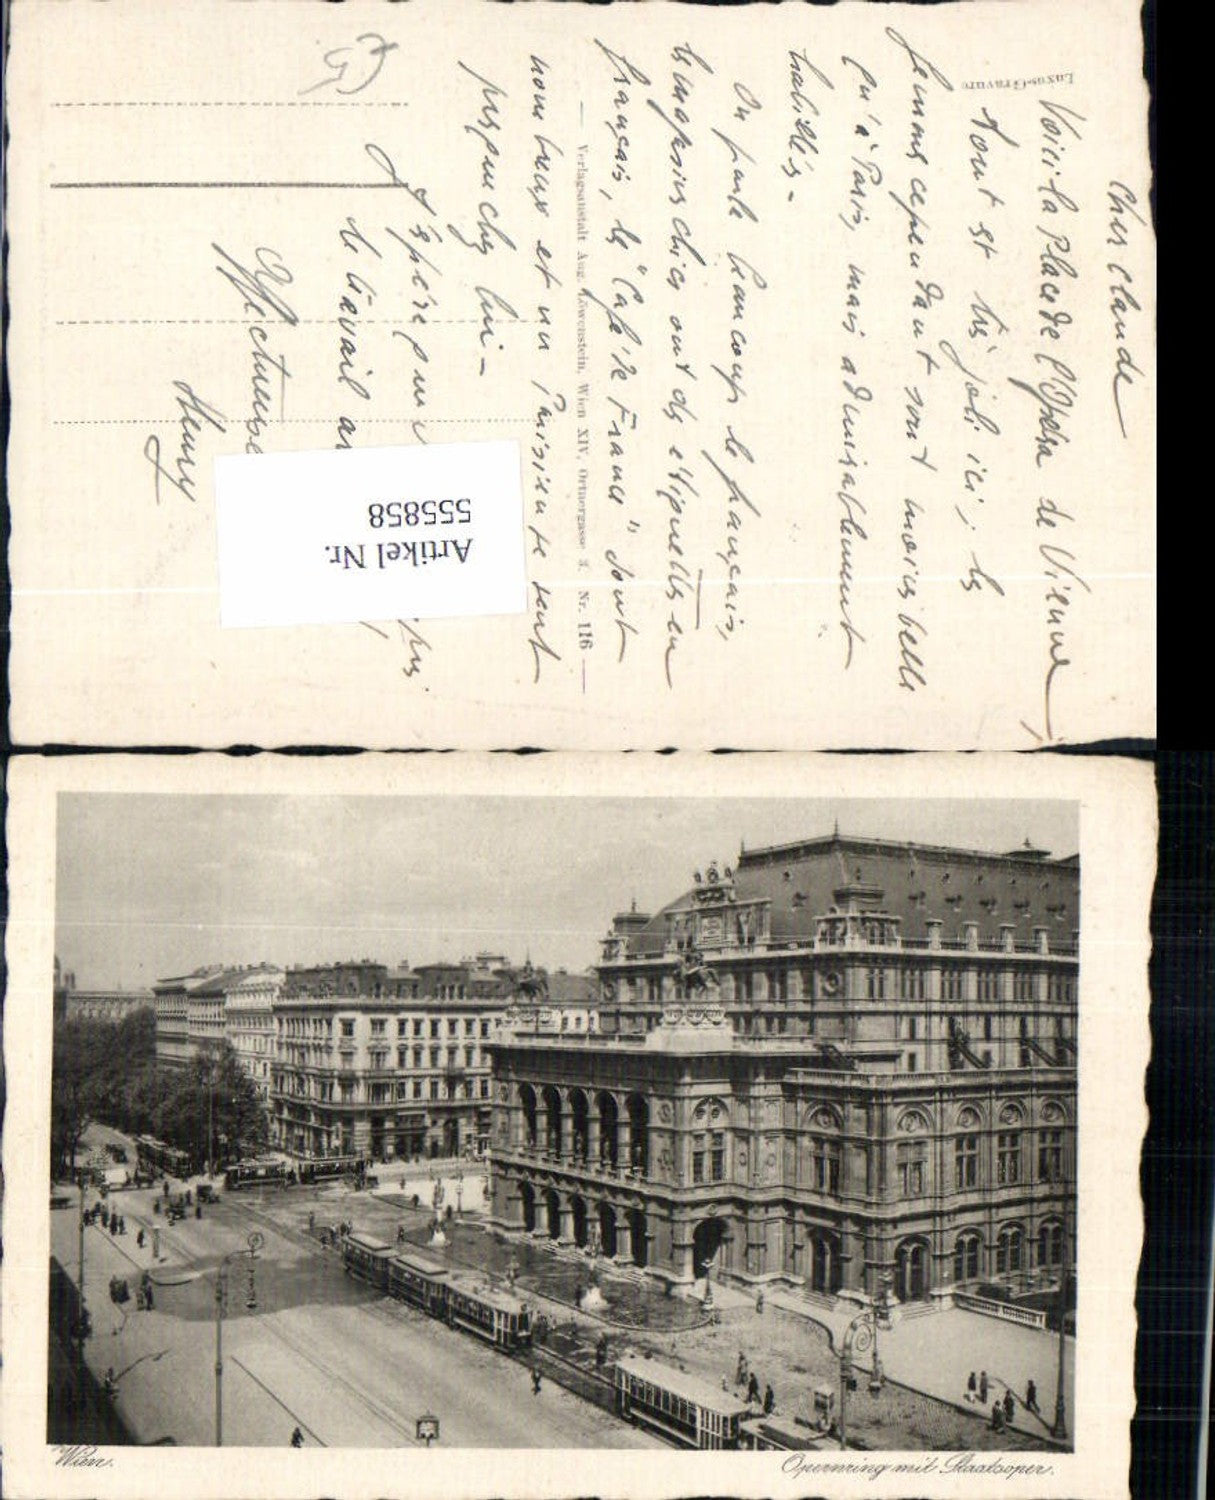 Cher Claude
Voici la Place de l'Opéra de Vienne
Tout est très joli ici; les
femmes cependant sont moins belles
qu'à Paris, mais admirablement
habillées.
On parle beaucoup le français,
les magasins chics ont des étiquettes en
français, les "Café de France" sont
nombreux et un parisien se sent
presque chez lui -
J'espère que
le travail
Affectueuse
Henry
Luxus-Gravure
Verlagsanstalt Aug. Löwenstein, Wien XIV, Ortnergasse 3. Nr. 116
Artikel Nr.
555858
Wien.
Opernring mit Staatsoper.